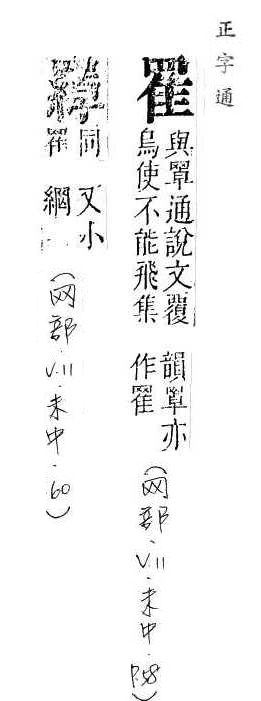 正字通
罩
與罩通說文覆
鳥使不能飛集
韻罩亦
作罩
(网部.V.11.未中.P.58)
同
又小
網
(网部.V.11.未中.60)